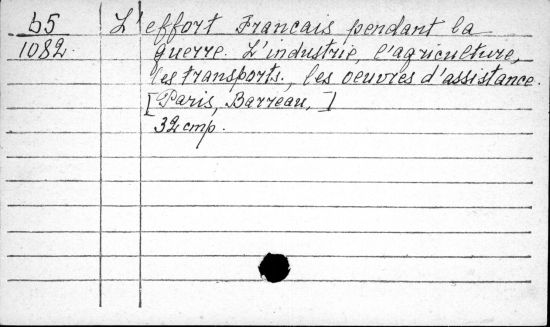 b5 L'effort Francais pendant la
1082. guerre. L'industrie, l'agriculture,
les transports., les oeuvres d'assistance.
[Paris, Barreau, ]
32 cmp.